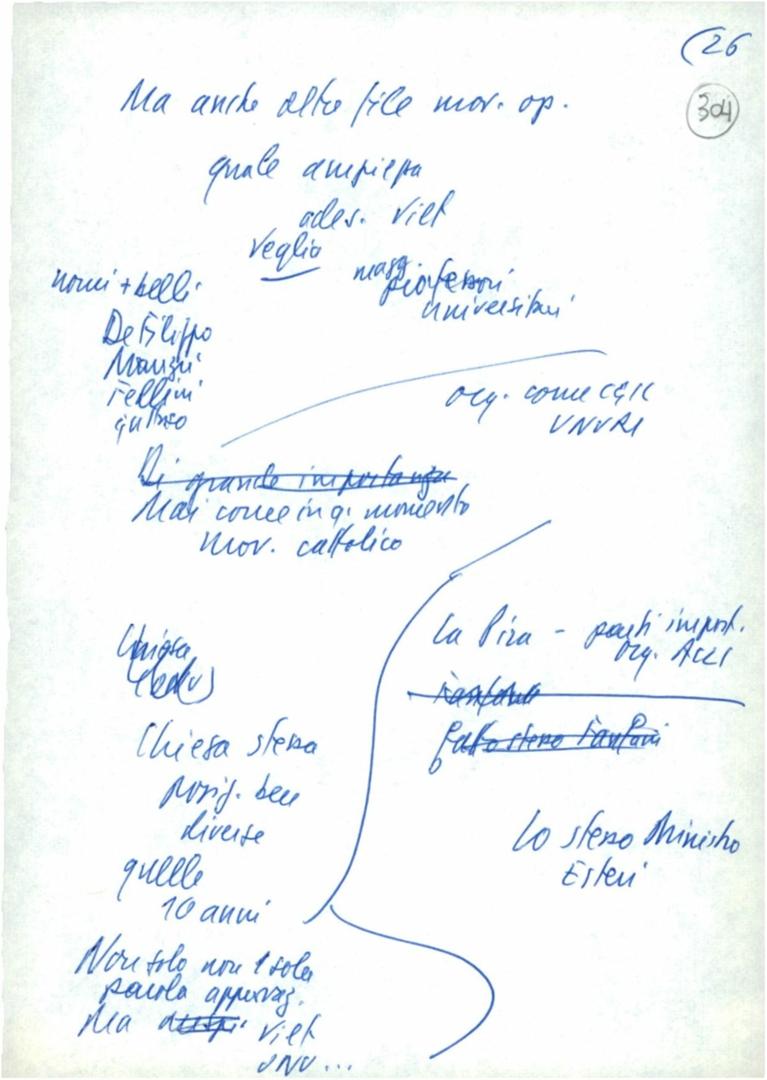 (26
304
Ma anche oltre file mov. op.
quale ampiezza
ades. Viet
Veglia
nomi + belli
De Filippo
Manzù
Fellini
Guttuso
magg. professori
universitari
org. come CGIL
UNURI
Di grande importanza
Mai come in q. momento
mov. cattolico
La Pira - parti import.
org. Acli
Fanfani
fatto stesso Fanfani
Lo stesso Ministro
Esteri
Chiesa
Chiesa stessa
posiz. ben
diverse
quelle
10 anni
Non solo non 1 sola
parola approvaz.
Ma Viet
ONU...